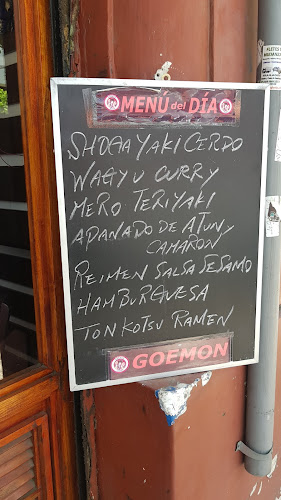 MENÚ del DÍA
SHOGAYAKI CERDO
WAGYU CURRY
MERO TERIYAKI
APANADO DE ATUN y
CAMARON
REIMEN SALSA SESAMO
HAMBURGUESA
TONKOTSU RAMEN
GOEMON